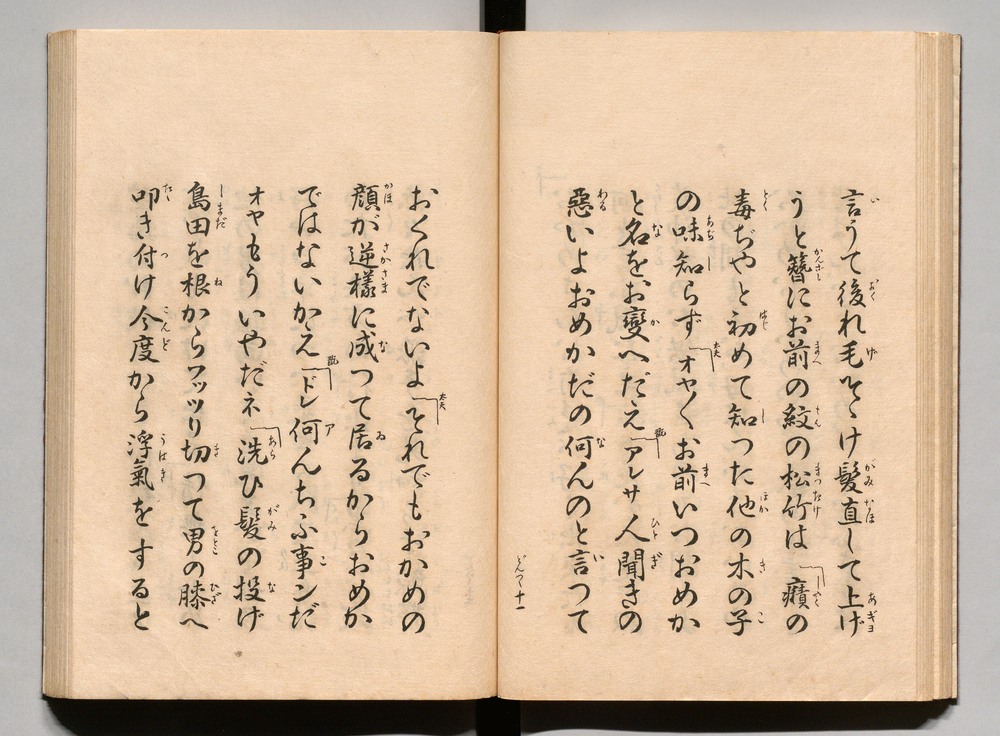 言うて後れ毛そゝけ髮直して上げ
うと簪にお前の紋の松竹は「癪の
毒ぢやと初めて知つた他の木の子
の味知らず「オヤ〱お前いつおめか
と名をお變へだえ「アレサ人聞きの
惡いよおめかだの何んのと言つて
おくれでないよ「それでもおかめの
顔が逆樣に成つて居るからおめか
ではないかえ「ドレ何んちふ事ンだ
オヤもういやだネ「洗ひ髮の投げ
島田を根からフッツリ切つて男の膝へ
叩き付け今度から浮氣をすると